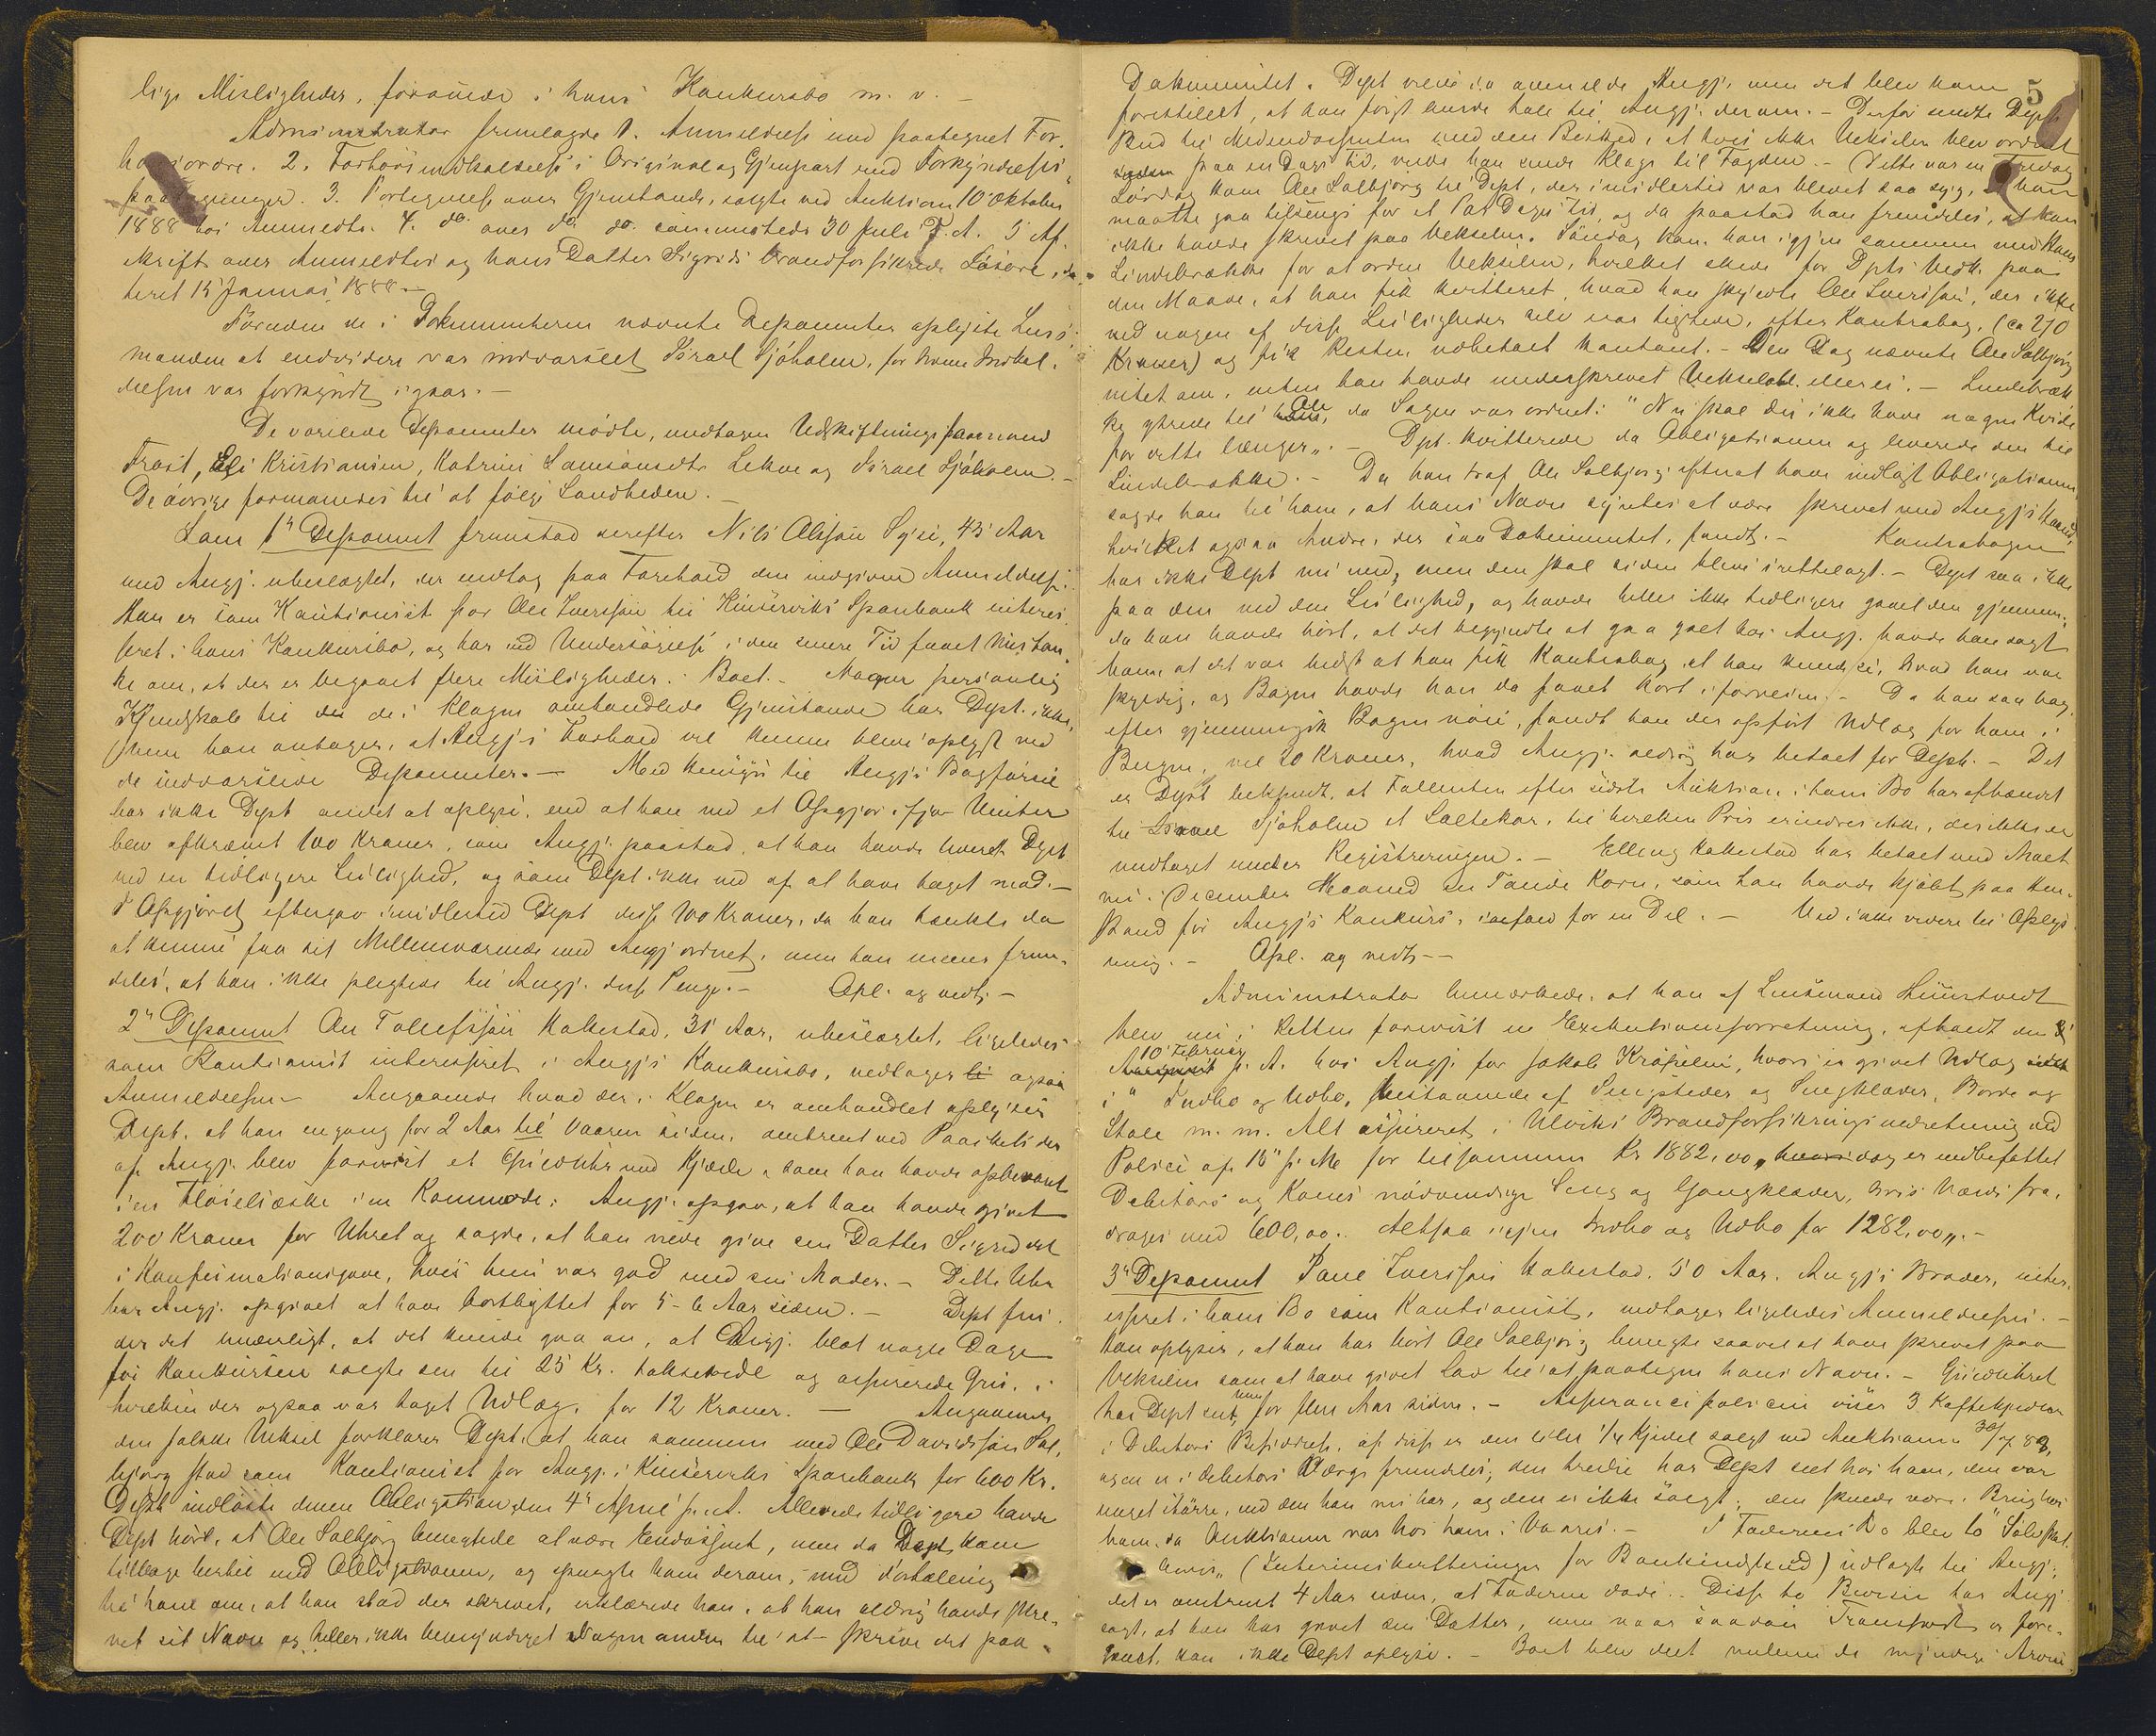 lige Misligheder, forøvede i hans Konkursbo m. v. –
Administrator fremlagde 1. Anmeldelse med paategnet For-
hørsordre. 2. Forhørsindkaldelse i Original og Gjenpart med Forkyndelses-
paategninger. 3. Fortegnelse over Gjenstande, solgte ved Auktion 10 Oktober
1888 hos Anmeldte. 4. do. over do. do. sammesteds 30 Juli d. A. 5 Af-
skrift over Anmeldtes og hans Datter Sigrids brandforsikrede Løsøre, da-
teret 15 Januar 1888. –
Foruden de i Dokumenterne nævnte Deponenter oplyste Lens-
manden at endvidere var indvarslet Israel Sjøholm, for hvem Indkal-
delsen var forkyndt igaar. –
De varslede Deponenter mødte, undtagen Udskiftningsformand
Frost, Eli Kristiansen, Katrine Samsonsdtr. Lekve og Israel Sjøholm. –
De øvrige formanedes til at følge Sandheden. –
Som 1ste Deponent fremstod derefter Nils Olsson Syse, 43 Aar
med Angj. ubeslægtet, der vedtog paa Forehold den indgivne Anmeldelse.
Han er som Kautionist for Ole Iversson til Kinserviks Sparebank interes-
seret i hans Konkursbo, og har ved Undersøgelse i den senere Tid faaet Mistan-
ke om, at der er begaaet flere Misligheder i Boet. – Nogen personlig
Kjendskab til de i Klagen omhandlede Gjenstande har Dept. ikke,
men han antager, at Angj's Forhold vil kunne blive oplyst ved
de indvarslede Deponenter. – Med Hensyn til Angj's Bogførsel
har ikke Dept andet at oplyse, end at han ved et Opgjør ifjor Vinter
blev afkrævet 100 Kroner, som Angj. paastod, at han havde leveret Dept
ved en tidligere Leilighed, og som Dept. ikke ved af at have taget mod. –
I Opgjøret eftergav imidlertid Dept disse 100 Kroner, da han tænkte da
at kunne faa sit Mellemværende med Angj. ordnet, men han mener frem-
deles, at han ikke pligtede til Angj. disse Penge. – Opl. og vedt. –
2den Deponent Ole Tollefsson Kakestad, 31 Aar, ubeslægtet, ligeledes
som Kautionist interesseret i Angj's Konkursbo, vedtager li ogsaa
Anmeldelsen. – Angaaende hvad der i Klagen er omhandlet oplyser
Dept. at han engang for 2 Aar til Vaaren siden, omtrent ved Paasketider
af Angj. blev forevist et Gulduhr med Kjæde, som han havde opbevaret
i en Fløielsæske i en Kommode; Angj. opgav, at han havde givet
200 Kroner for Uhret og sagde, at han vilde give sin Datter Sigrid det
i Konfirmationsgave, hvis hun var god med sin Moder. – Dette Uhr
har Angj. opgivet at have bortbyttet for 5-6 Aar siden. – Dept fin-
der det underligt, at det kunde gaa an, at Angj. blot nogle Dage
før Konkursen solgte sin til 25 Kr. takserede og assurerede Gris, i
hvilken der ogsaa var taget Udlæg, for 12 Kroner. – Angaaende
den falske Veksel forklarer Dept. at han sammen med Ole Davidsson Sol-
bjørg stod som Kautionist for Angj. i Kinserviks Sparebank for 600 Kr.
Dept. indløste denne Obligation den 4de April d. A. Allerede tidligere havde
Dept hørt, at Ole Solbjørg benegtede at være Endossent, men da Dept. kom
tilbage hertil med Obligationen, og spurgte ham derom, med Fortælling
til ham om, at han stod der skrevet, erklærede han, at han aldrig havde skre-
vet sit Navn og heller ikke bemyndiget Nogen anden til at skrive det paa
5
Dokumentet. Dept vilde da anmelde Angj. men det blev ham
forestillet, at han først burde tale til Angj. derom. – Derfor sendte Dept
Bud til Medendossenten med den Besked, at hvis ikke Vekselen blev ordnet
paa en Dags Tid, vilde han sende Klage til Fogden. – (Dette var en Fredag)
Lørdag kom Ole Solbjørg til Dept, der imidlertid var blevet saa syg, at han
maatte gaa tilsengs for et Par Dages Tid, og da paastod han fremdeles, at han
ikke havde skrevet paa Vekselen. Søndag kom han igjen sammen med Hans
Lindebrække for at ordne Vekselen, hvilket skede for Dpts Vedk. paa
den Maade, at han fik kvitteret, hvad han skyldte Ole Iversson, der ikke
ved nogen af disse Leiligheder selv var tilstede, efter Kontrabog, (ca 270
Kroner) og fik Resten udbetalt kontant. – Den Dag nævnte Ole Solbjørg
intet om, enten han havde underskrevet Vekselobl. eller ei. – Lindebræk-
ke ytrede til Ole, da Sagen var ordnet: "Nu skal Du ikke have nogen Kvide
for dette længer". – Dpt. kvitterede da Obligationen og leverede den til
Lindebrække. – Da han traf Ole Solbjørg efterat have indløst Obligationen
sagde han til ham, at hans Navn syntes at være skrevet med Angj's Haand,
hvilket ogsaa Andre, der saa Dokumentet, fandt. – Kontrabogen
har ikke Dept nu med, men den skal siden blive irettelagt. – Dept saa ikke
paa den ved den Leilighed, og havde heller ikke tidligere gaaet den gjennem;
da han havde hørt, at det begyndte at gaa galt hos Angj. havde han sagt
ham, at det var bedst at han fik Kontrabog, at han kunde se, hvad han var
skyldig, og Bogen havde han da faaet kort i forveien. – Da han saa bag-
efter gjennemgik Bogen nøie, fandt han der opført Udlæg for ham i
Bergen, vel 20 Kroner, hvad Angj. aldrig har betalt for Dept. – Det
er Dept bekjendt, at Fallenten efter sidste Auktion i hans Bo har afhændet
til Israel Sjøholm et Saltekar, til hvilken Pris erindres ikke, der ikke er
medtaget under Registreringen. – Elling Kakestad har betalt ved
nu i December Maaned en Tønde Korn, som han havde kjøbt paa
før Angj's Konkurs, iafald for en Del. – Ved ikke videre til Oplys-
ning. – Opl. og vedt. –
Administrator bemærkede, at han af Lensmand
blev nu i Retten forevist en Exekutionsforretning, afholdt den
10 Februar d. A. hos Angj. for Jakob Kråkelm, hvori er givet Udlæg
i "Indbo og Udbo, bestaaende af Sengesteder og Sengklæder, Borde og
Stole m. m. Alt assureret i Ulviks Brandforsikringsindretning ved
Police af 15 for tilsammen Kr 1882,00, hvori dog er indbefattet
Debitors og Kones nødvendige Seng og Gangklæder, hvis Værdi fra-
drages med 600,00. Altsaa igjen Indbo og Udbo for 1282,00". –
3die Deponent Povel Iversson Kakestad, 50 Aar, Angj's Broder, inter-
esseret i hans Bo som Kautionist, vedtager ligeledes Anmeldelsen. –
Han oplyser, at han har hørt Ole Solbjørg benegte saavel at have skrevet paa
Vekselen som at have givet Lov til at paategne hans Navn. – Gulduhret
har Dept seet for flere Aar siden. – Assurancepolicen viser 3 Kaffekjedler
i Debitors Besiddelse, af disse er den lille 1/4 Kjedel solgt ved Auktionen 30/7 89,
 er i Debitors Værge fremdeles; den tredie har Dept seet hos ham, den var
noget større, end den han nu har, og den er ikke solgt; den skulde være i Brug hos
ham, da Auktionen var hos ham i Vaares. – I Faderens Bo blev to "Sølvskat-
bevis" (Interimskvitteringer for Bankindskud) udlagt til Angj.,
det er omtrent 4 Aar siden, at Faderen døde. Disse to Beviser har Angj
sagt, at han har givet sin Datter, men naar saadan Transport er fore-
gaaet, kan ikke Dept oplyse. – Boet blev delt mellem de myndige Arvin-